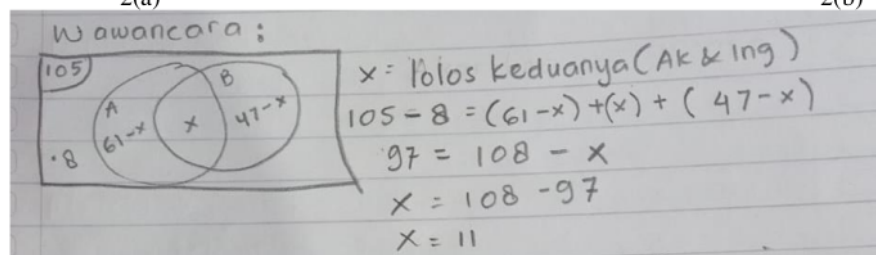 2(a) 2(b)
Wawancara :
105
A
B
61-x
x
47-x
.8
x = lolos keduanya (Ak & Ing)
105 - 8 = (61-x) + (x) + (47-x)
97 = 108 - x
x = 108 - 97
x = 11